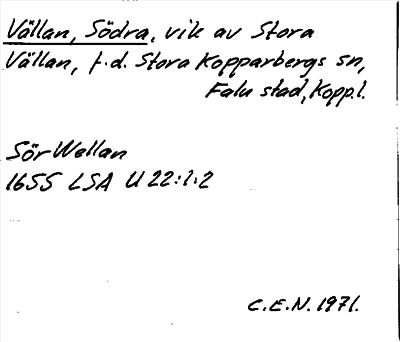 Vällan, Södra, vik av Stora
Vällan, f.d. Stora Kopparbergs sn,
Falu stad, Kopp.l.
Sör Wellan
1655 LSA U 22:1:2
C.E.N. 1971.